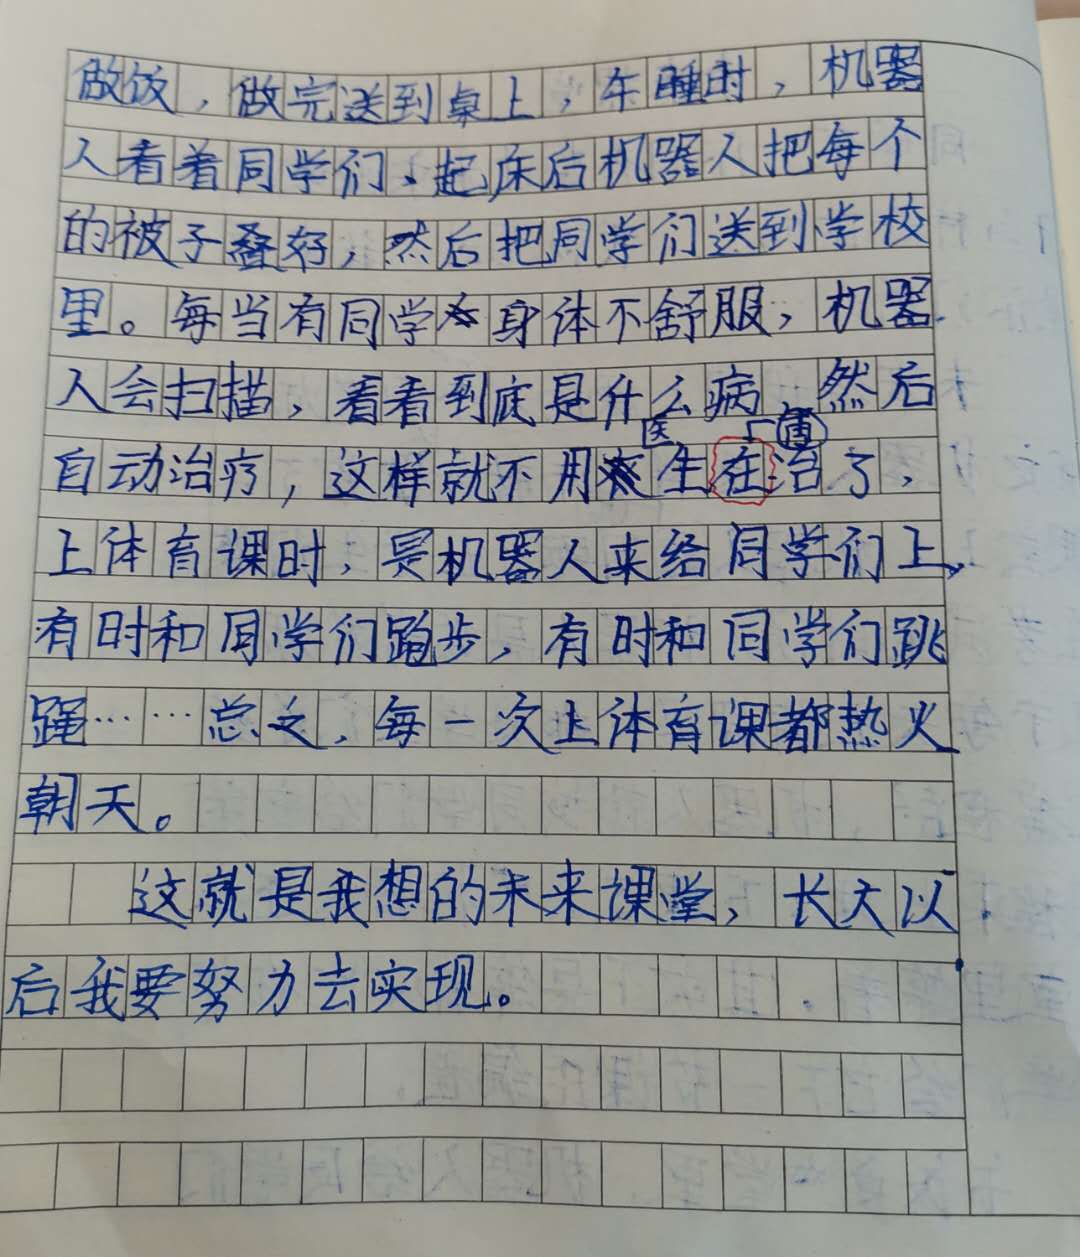 做饭，做完送到桌上，午睡时，机器
人看着同学们、起床后机器人把每个
的被子叠好，然后把同学们送到学校
里。每当有同学身体不舒服，机器
人会扫描，看看到底是什么病，然后
自动治疗，这样就不用医生在治了，
上体育课时，是机器人来给同学们上，
有时和同学们跑步，有时和同学们跳
绳……总之，每一次上体育课都热火
朝天。
这就是我想的未来课堂，长大以
后我要努力去实现。